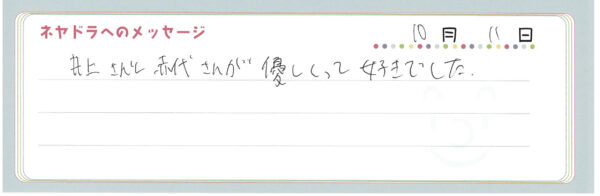 ネヤドラへのメッセージ
10月 11日
井上さんと赤代さんが優しくって好きでした.